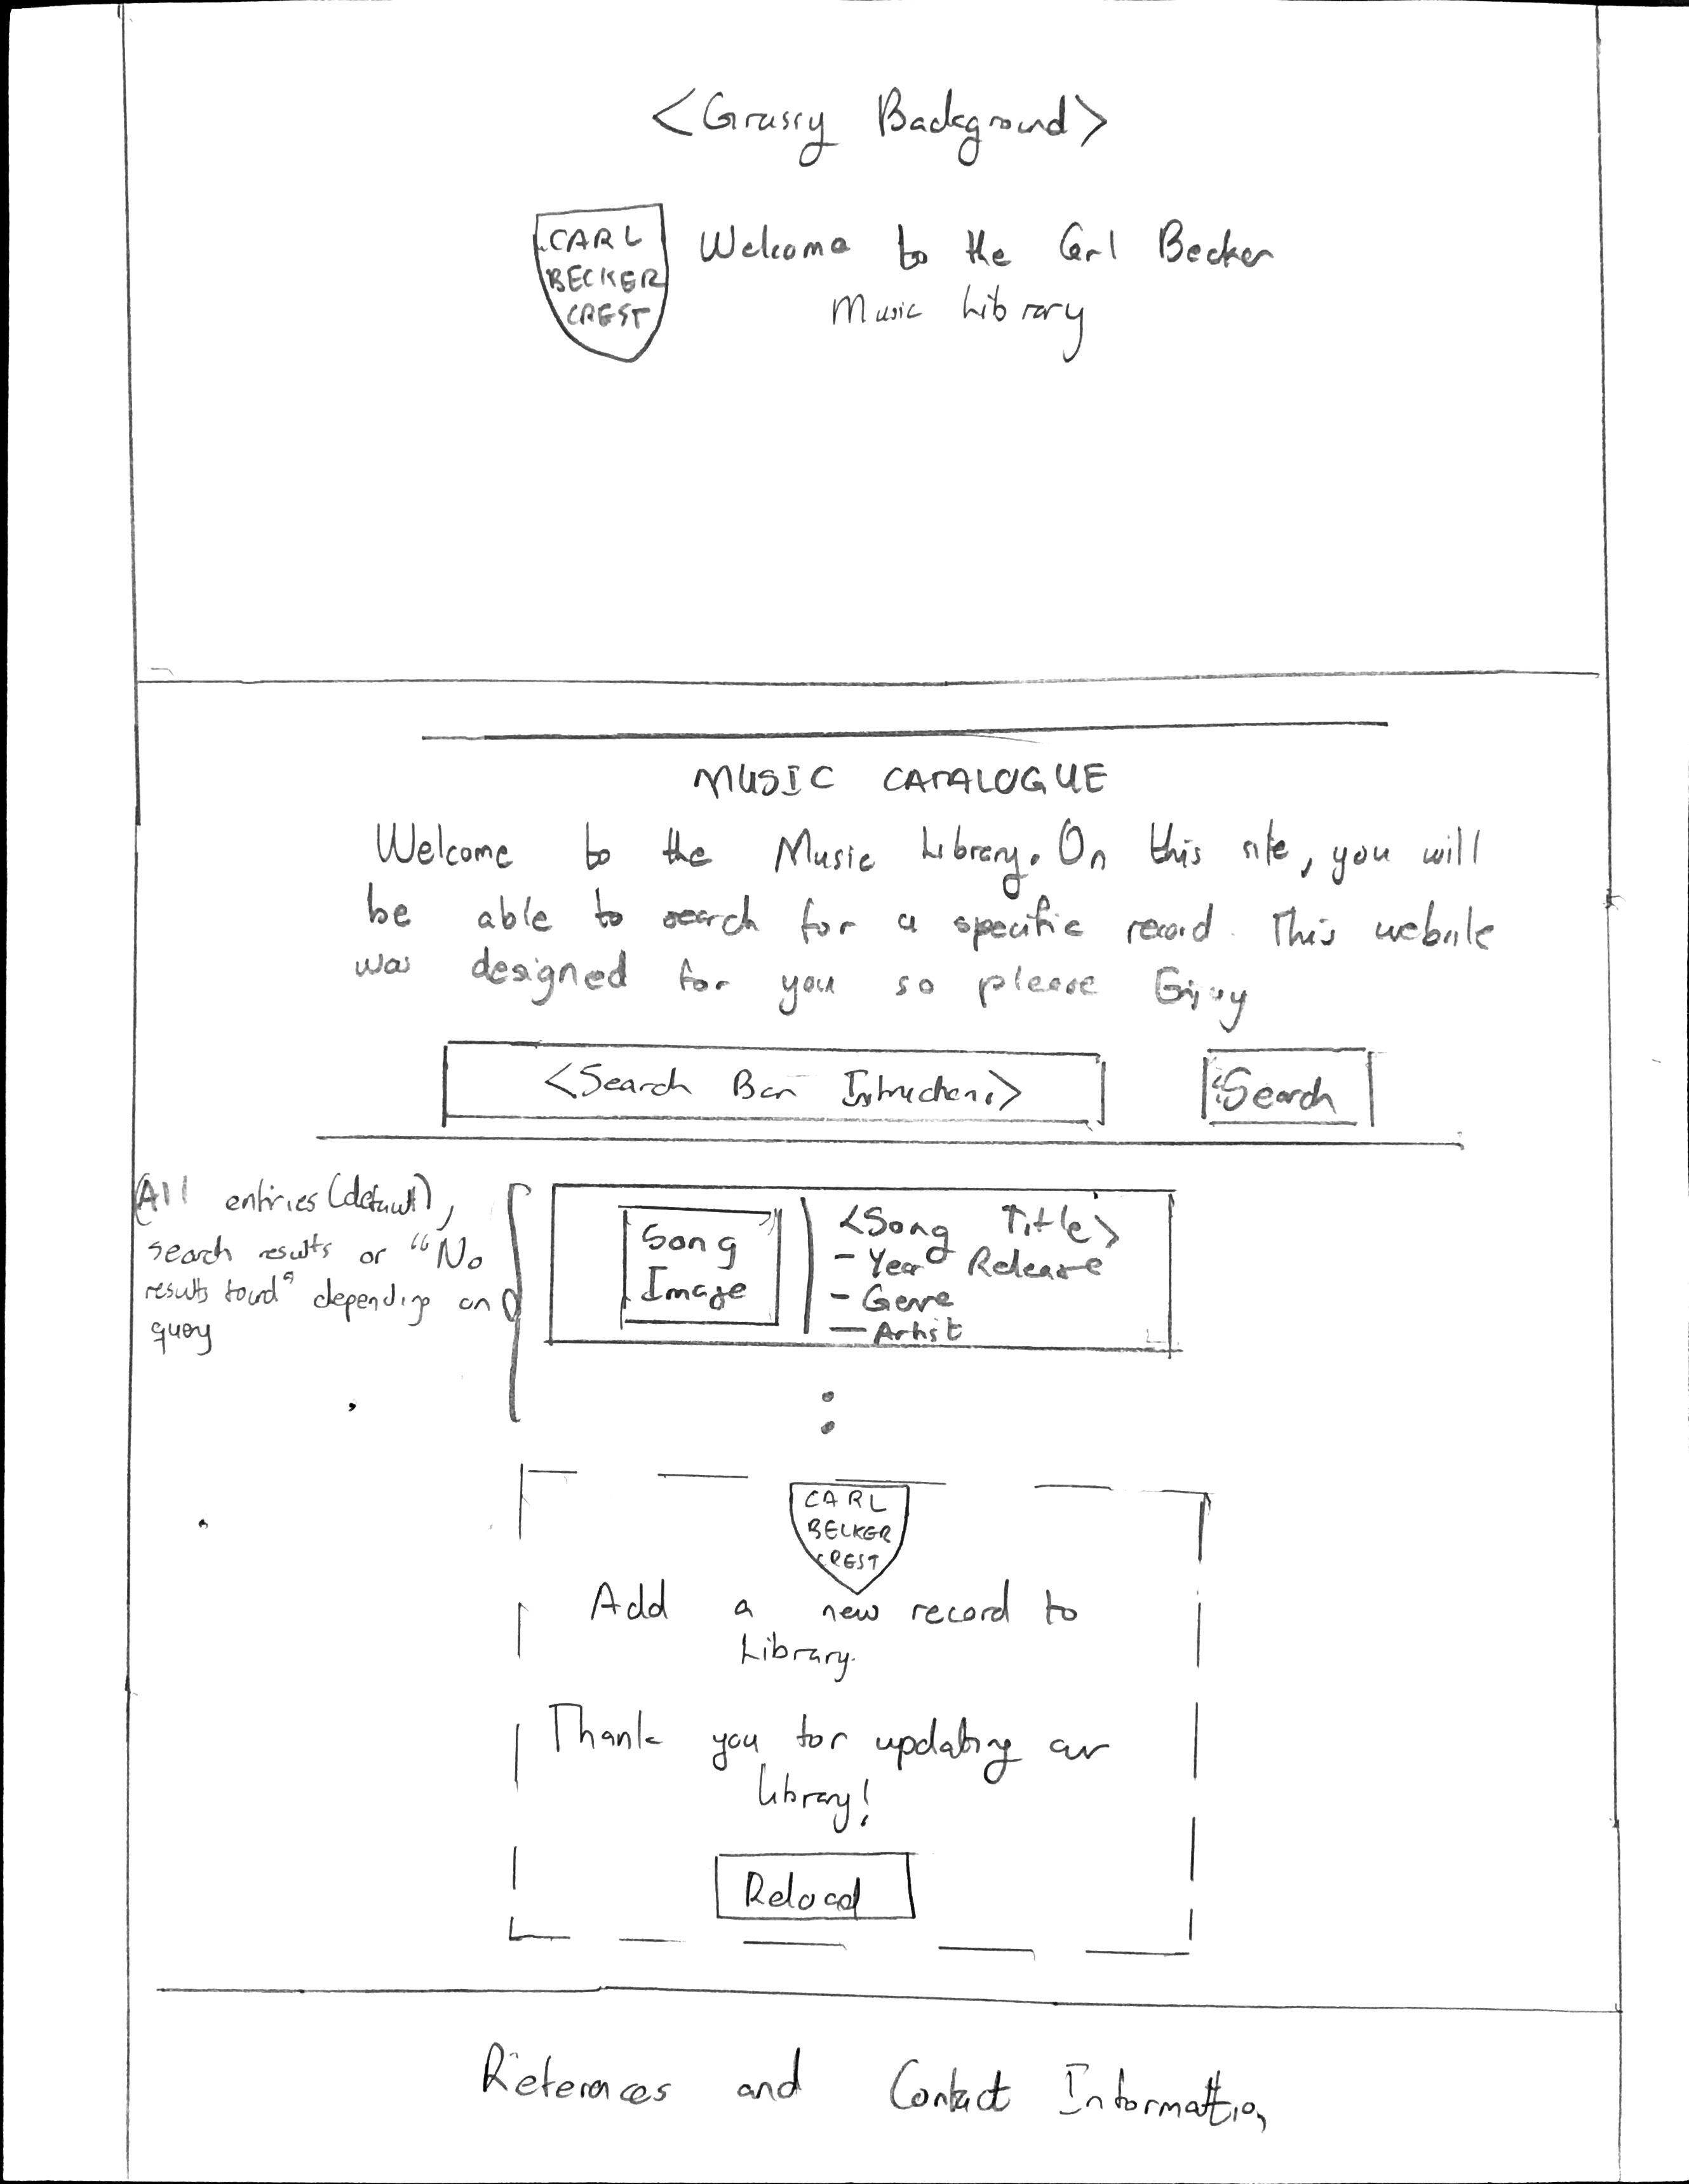 <Grassy Background>
CARL
BECKER
CREST
Welcome to the Carl Becker
Music Library
MUSIC CATALOGUE
Welcome to the Music Library. On this site, you will
be able to search for a specific record. This website
was designed for you so please Enjoy
<Search Bar Instructions>
"Search
(All entries (default),
search results or "No
results found" depending on
query
Song
Image
<Song Title>
- Year Release
- Genre
- Artist
CARL
BECKER
CREST
Add a new record to
Library.
Thank you for updating our
library!
Reload
References and Contact Information